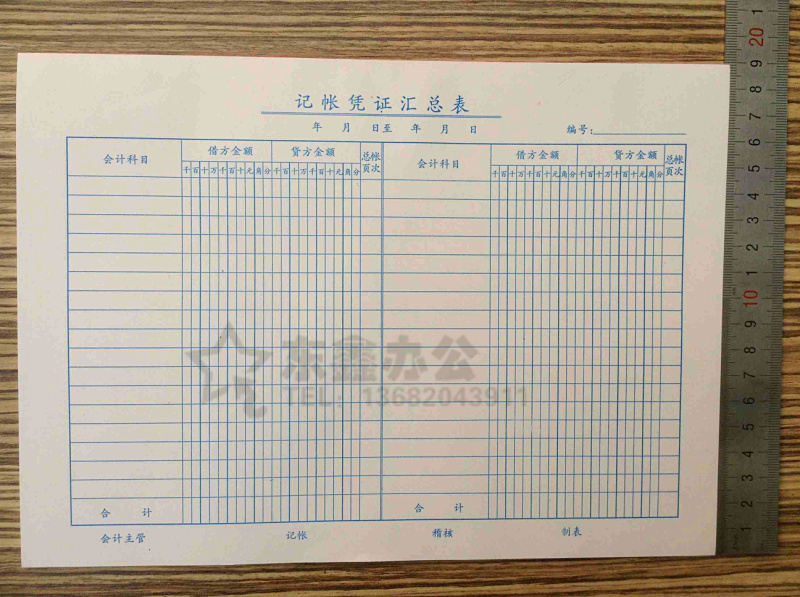 记帐凭证汇总表
年 月 日至 年 月 日 编号:
会计科目 借方金额 贷方金额 总帐页次 会计科目 借方金额 贷方金额 总帐页次
千百十万千百十元角分 千百十万千百十元角分 千百十万千百十元角分 千百十万千百十元角分
东鑫办公
TEL: 13682043911
合 计 合 计
会计主管 记帐 稽核 制表
1 20 9 8 7 6 5 4 3 2 1 10 9 8 7 6 5 4 3 2 1